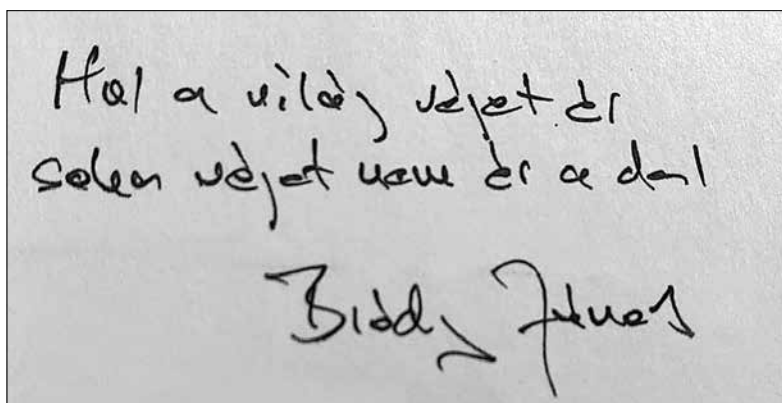 Hol a világ véget ér
sohsem véget nem ér a dal
Bródy János